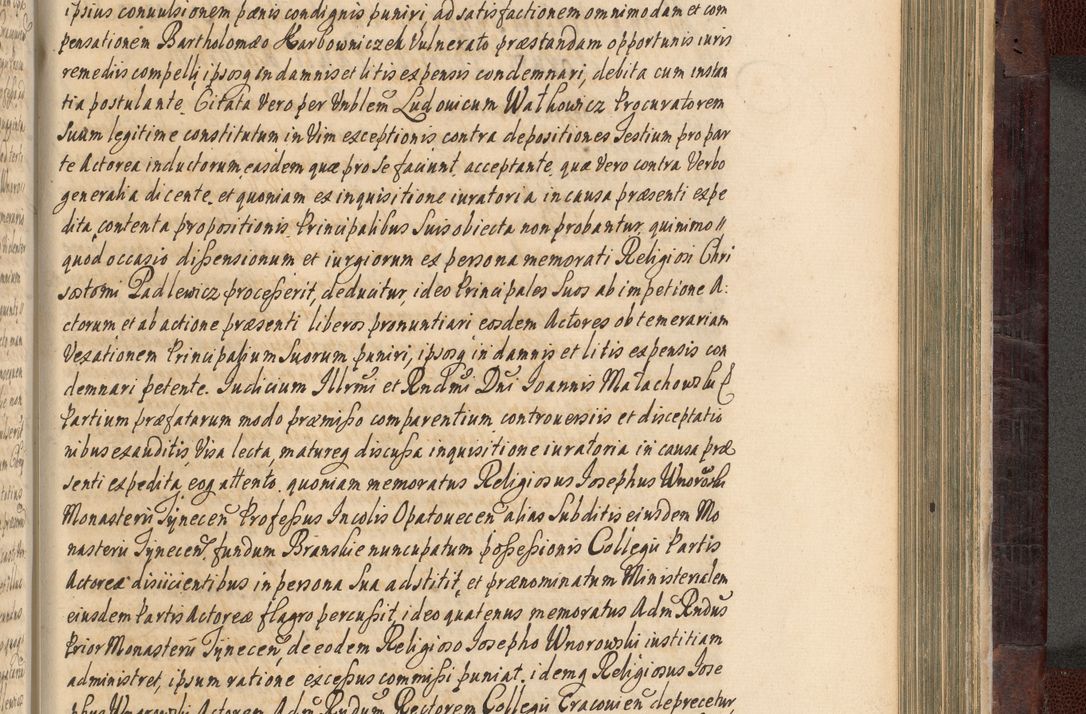 ipsius convulsionem pænis condignis puniri, ad satisfactionem omnimodam et com
pensationem Bartholomæo Karbowniczek Vulnerato præstandam opportunis iuris
remediis compelli, ipsosq in damnis et litis expensis condemnari, debita cum instan
tia postulante. Citata Vero per Vnblem Ludovicum Wałkowicz Procuratorem
Suum legitime constitutum in Vim exceptionis contra depositiones Testium pro par
te Actorea inductorum easdem quæ pro se faciunt acceptante, quæ Vero contra Verbo
generalia dicente, et quoniam ex inquisitione iuratoria in causa præsenti expe
dita, contenta propositionis Principalibus Suis obiecta non probantur, quinimo
quod occasio dißensionum et iurgiorum ex persona memorati Religiosi Chri
sostomi Padlewicz proceßerit, deducitur, ideo Principales Suos ab impetione A:
ctorum et ab actione præsenti liberos pronuntiari eosdem Actores ob temerariam
Vexationem Principalium Suorum puniri, ipsosq in damnis et litis expensis con
demnari petente. Judicium Illrmi et Rndmi Dni Joannis Małachowski E
Partium præfatarum modo præmißo comparentium controversiis et disceptatio
nibus exauditis, Visa lecta, matureq discußa inquisitione iuratoria in causa præ
senti expedita, eoq attento, quoniam memoratus Religiosus Josephus Wnorowski
Monasterii Tynecen Profeßus Incolis Opatovecen alias Subditis eiusdem Mo
nasterii Tynecen, fundum Branskie nuncupatum poßeßionis Collegii Partis
Actoreæ disiicientibus in persona Sua adstitit, et prænominatum Ministerialem
eiusdem Partis Actoreæ flagro percußit, ideo quatenus memoratus Adm Rndus
Prior Monasterii Tynecen, de eodem Religioso Josepho Wnorowski iustitiam
administret, ipsum ratione exceßus commißi puniat, idemq Religiosus Jose
phus Wnorowski Actorem Adm Rndum Rectorem Collegii Cracovien deprecetur,